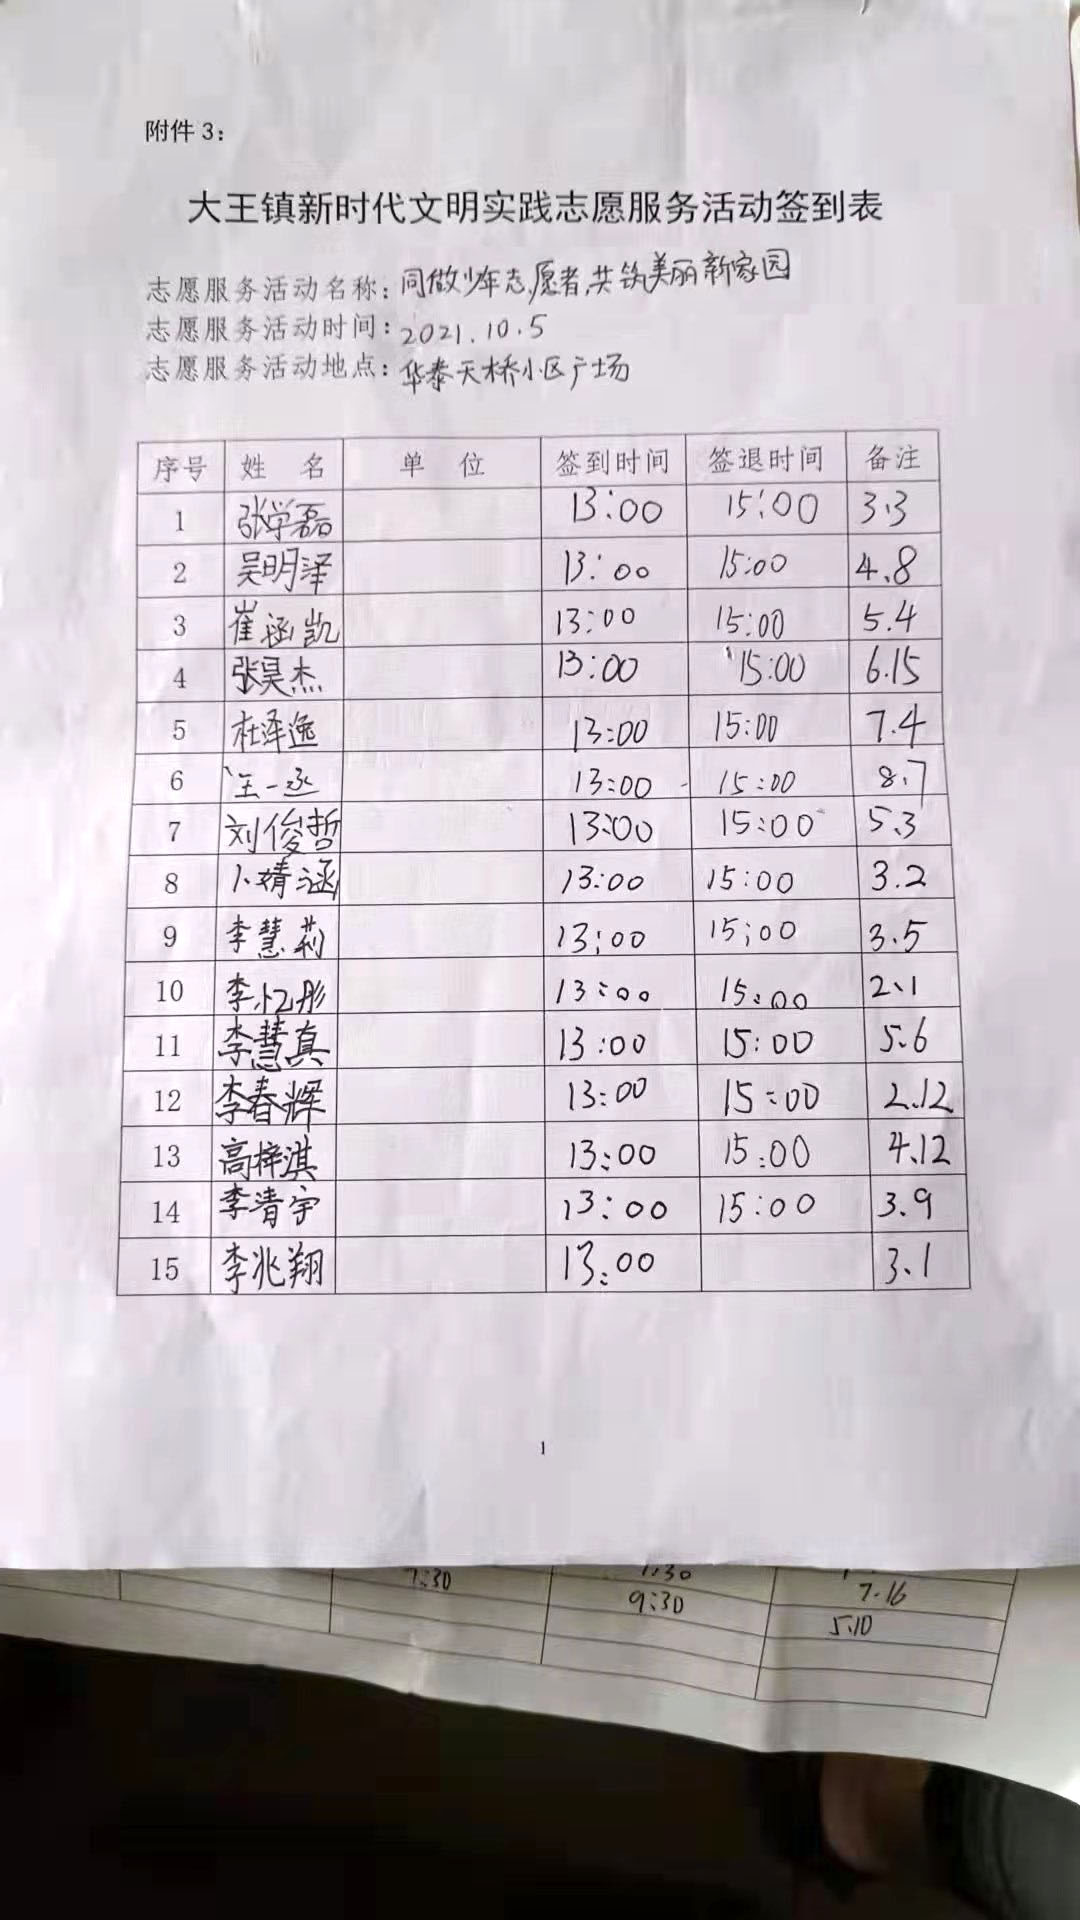 附件 3：
大王镇新时代文明实践志愿服务活动签到表
志愿服务活动名称：同做少年志愿者,共筑美丽新家园
志愿服务活动时间：2021.10.5
志愿服务活动地点：华泰天桥小区广场
序号 姓 名 单 位 签到时间 签退时间 备注
1 张学磊 13:00 15:00 3.3
2 吴明泽 13:00 15:00 4.8
3 崔涵凯 13:00 15:00 5.4
4 张昊杰 13:00 15:00 6.15
5 杜泽逸 13:00 15:00 7.4
6 王一丞 13:00 15:00 8.7
7 刘俊哲 13:00 15:00 5.3
8 卜婧涵 13:00 15:00 3.2
9 李慧莉 13:00 15:00 3.5
10 李忆彤 13:00 15:00 2.1
11 李慧真 13:00 15:00 5.6
12 李春辉 13:00 15:00 2.12
13 高梓淇 13:00 15:00 4.12
14 李清宇 13:00 15:00 3.9
15 李兆翔 13:00 3.1
1
7:30 7.16
9:30 5.10